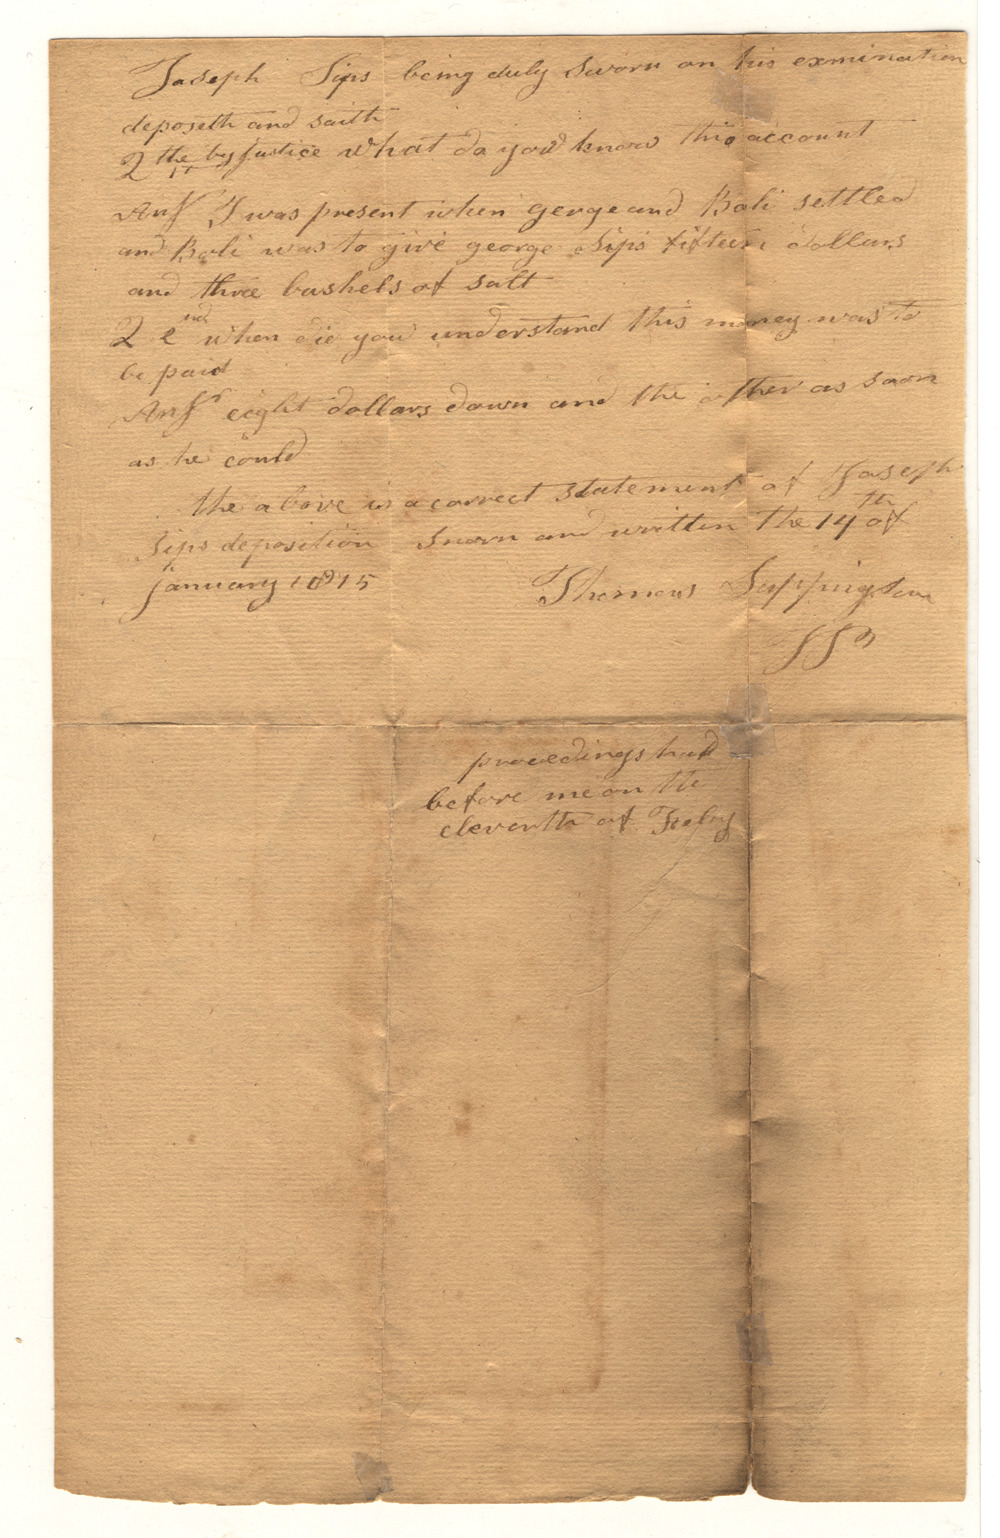 Joseph Sips being duly sworn on his exmination
deposeth and saith
Q the by Justice what do you know this account
Ansr I was present when gerge and Bali settled
and Bali was to give george Sips fifteen dollars
and three bushels of salt
Q 2nd when did you understand this money was to
be paid
Ansr eight dollars down and the other as soon
as he could
the above is a correct statement of Joseph
Sips deposition sworn and written the 14th of
january 1815
Thomas Sappington
JP
proceedings had
before me on the
eleventh of Feby